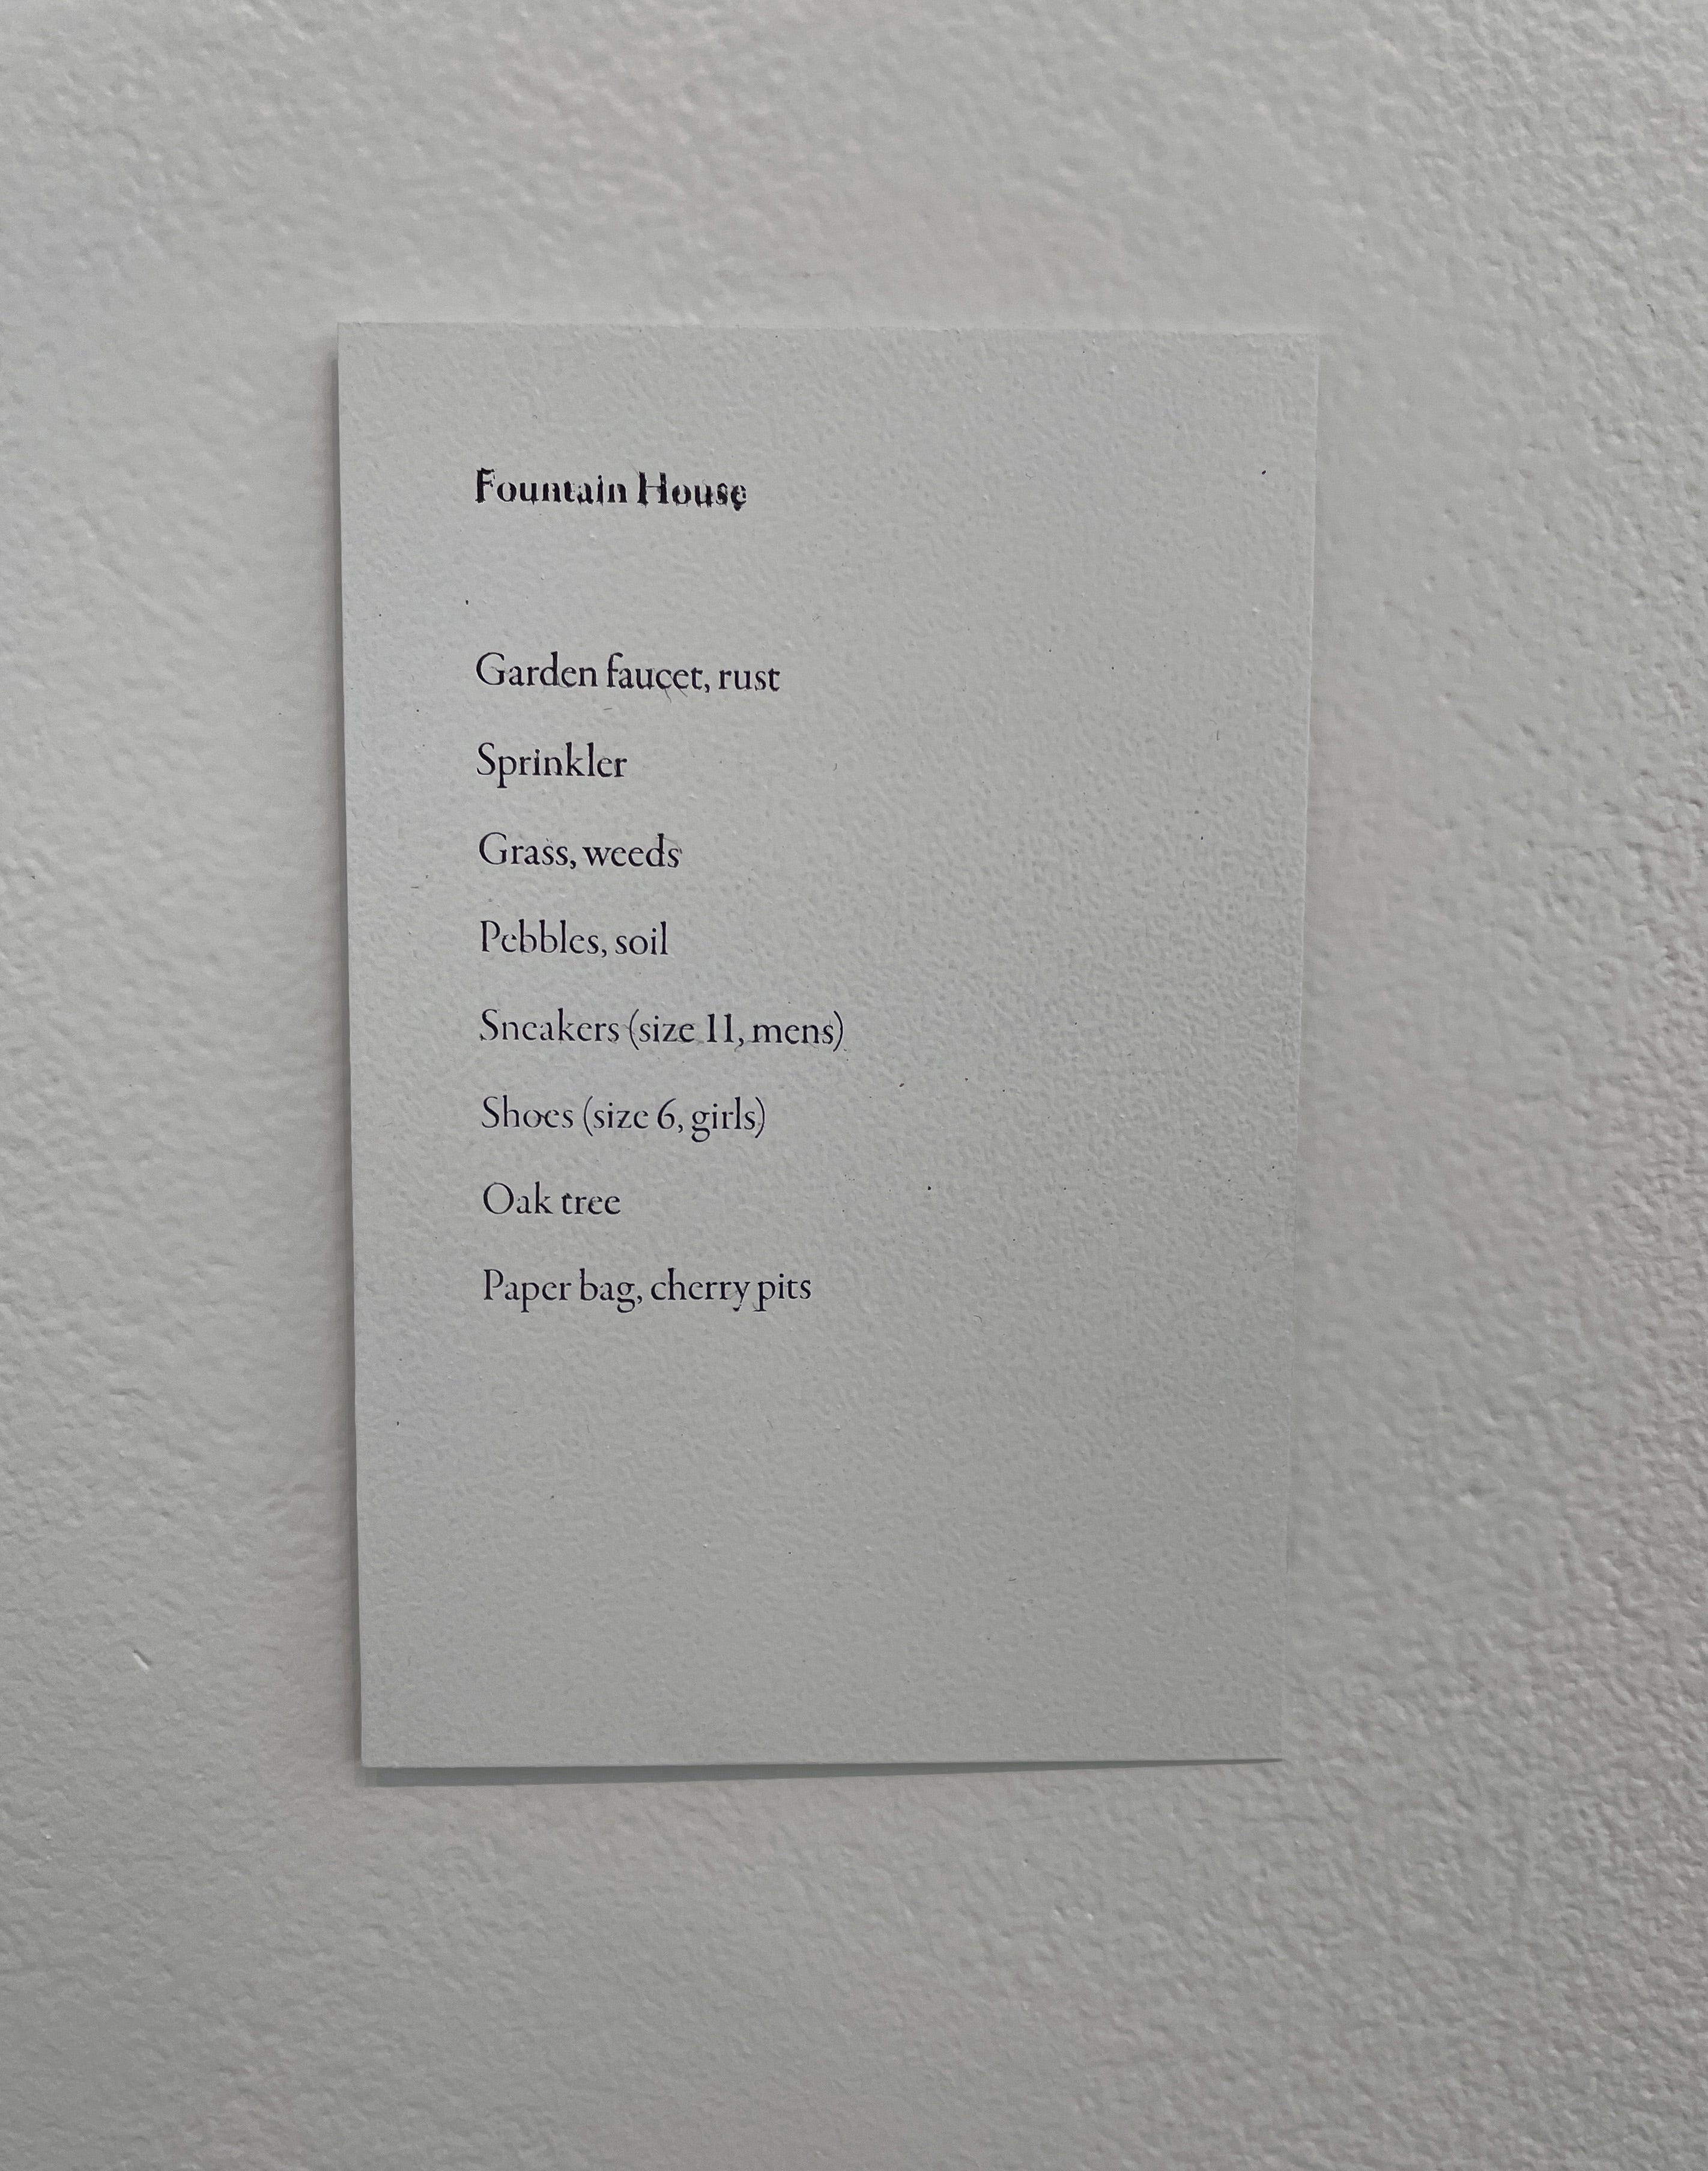 Fountain House
Garden faucet, rust
Sprinkler
Grass, weeds
Pebbles, soil
Sneakers (size 11, mens)
Shoes (size 6, girls)
Oak tree
Paper bag, cherry pits